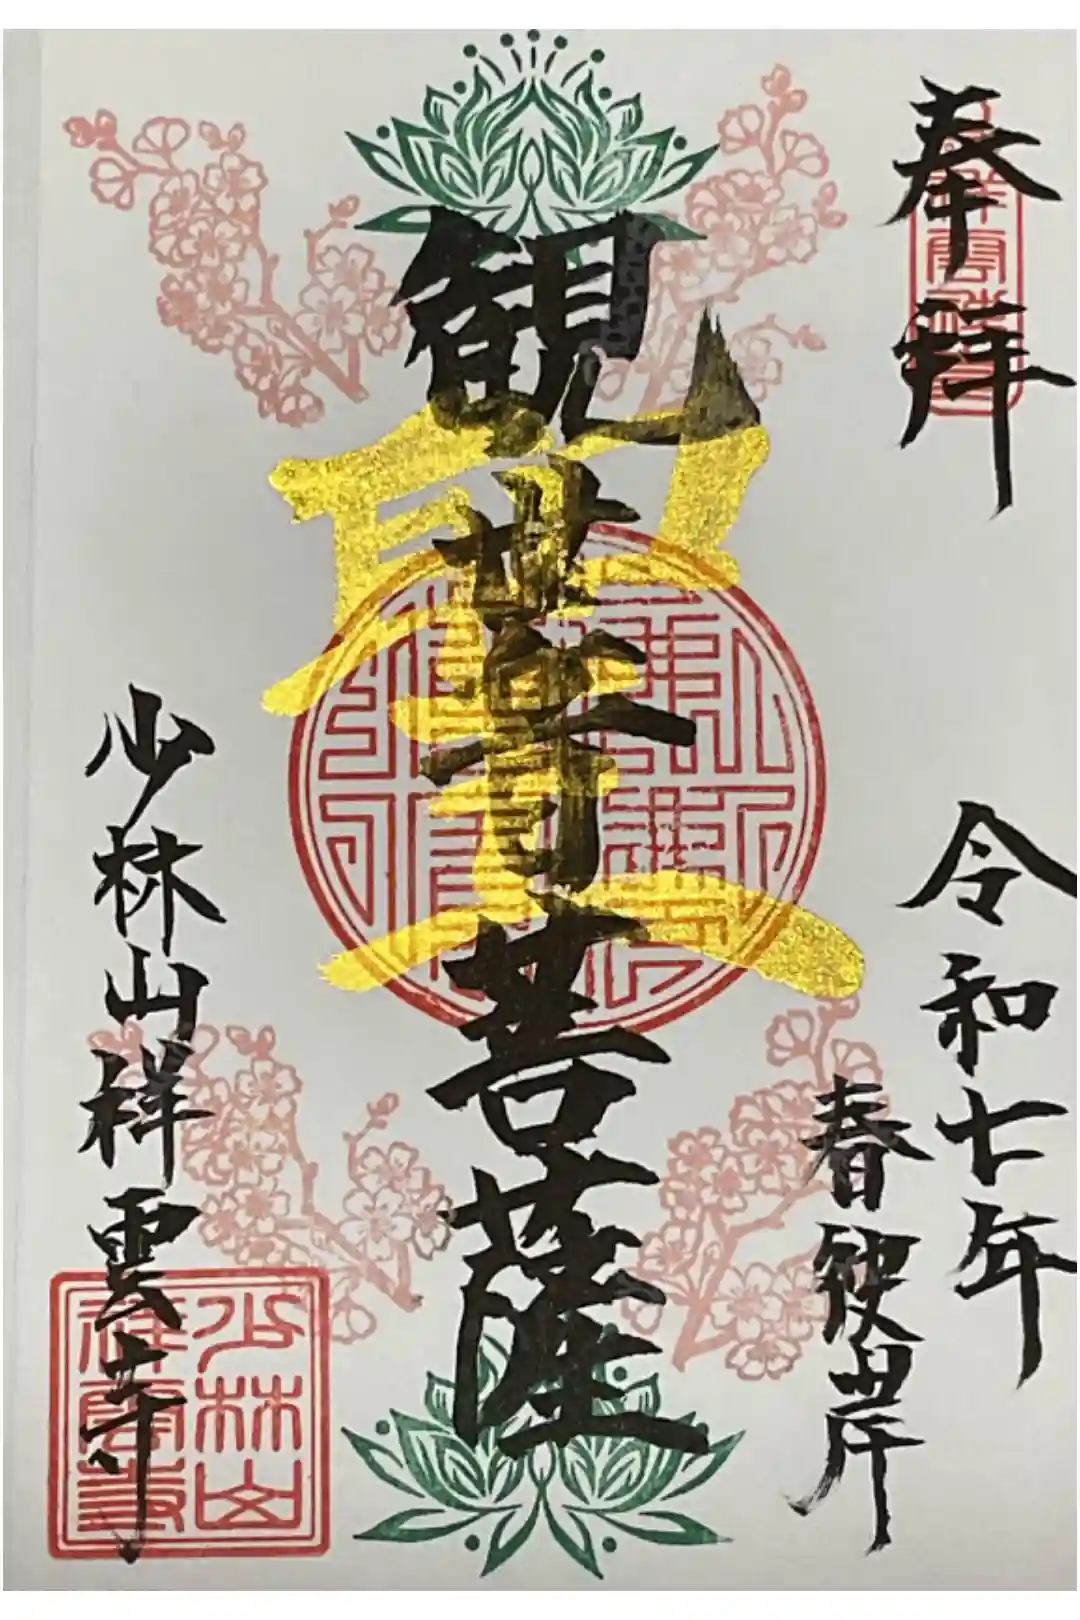 奉拝
令和七年
春彼岸
観世音菩薩
聖
少林山祥雲寺
少林山
祥雲寺